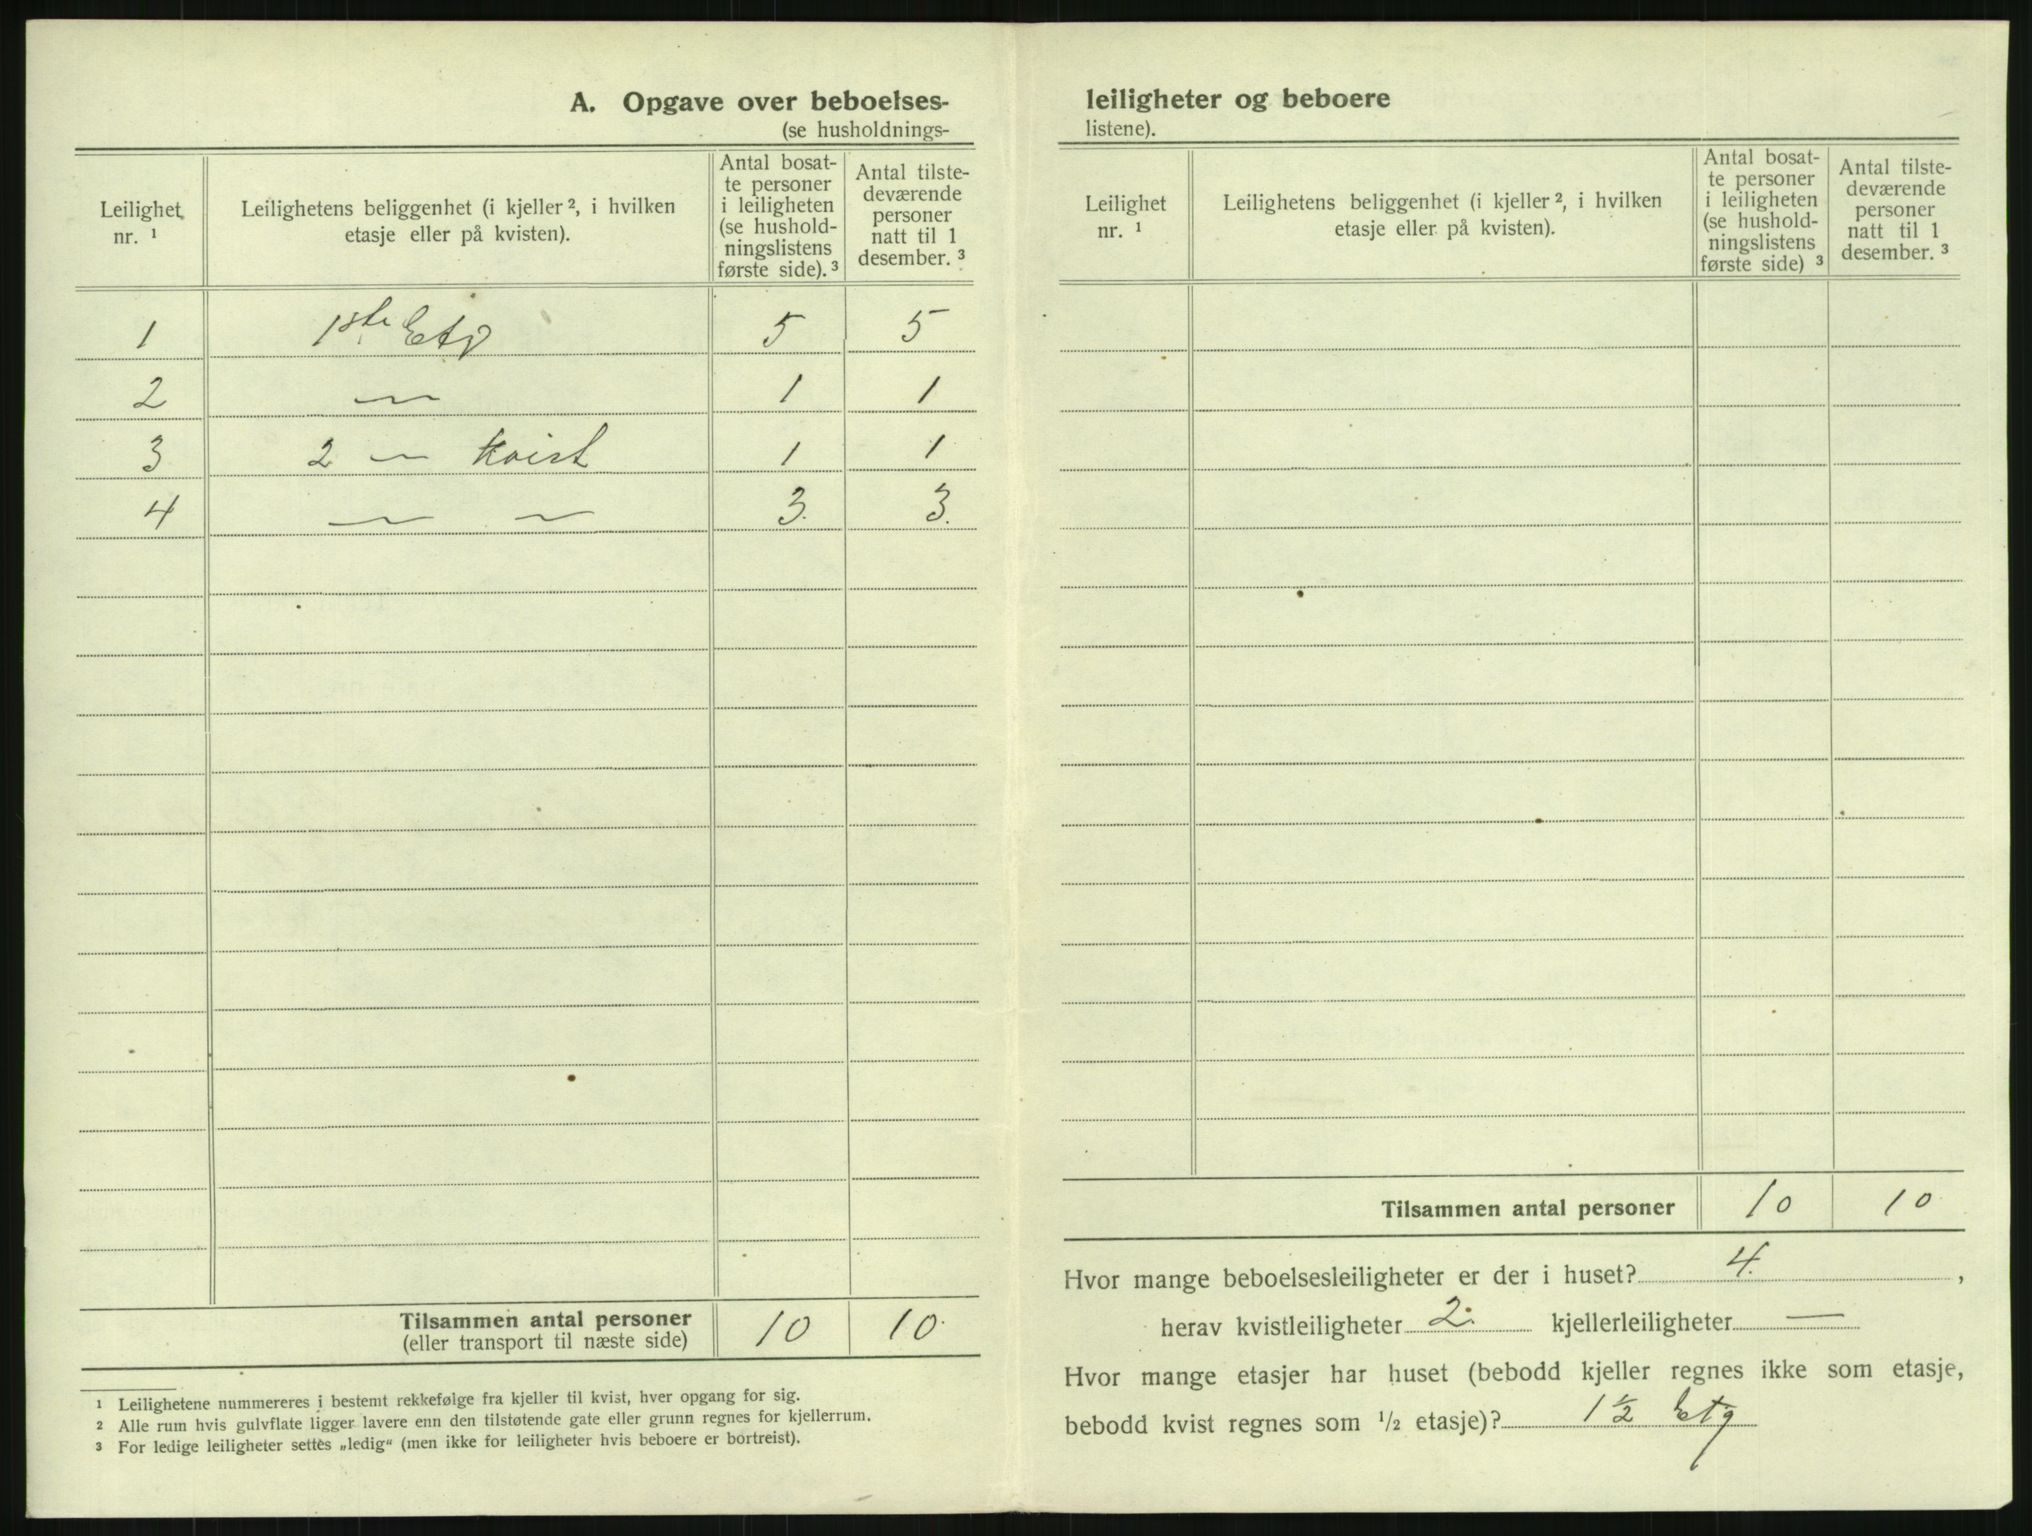 A. Opgave over beboelses-
(se husholdnings-
Leilighet nr. ¹
Leilighetens beliggenhet (i kjeller ², i hvilken etasje eller på kvisten).
Antal bosatte personer i leiligheten (se husholdningslistens første side). ³
Antal tilstedeværende personer natt til 1 desember. ³
1 1ste Etg 5 5
2 — 1 1
3 2 — Kvist 1 1
4 — — 3. 3.
Tilsammen antal personer 10 10.
(eller transport til næste side)
¹ Leilighetene nummereres i bestemt rekkefølge fra kjeller til kvist, hver opgang for sig.
² Alle rum hvis gulvflate ligger lavere enn den tilstøtende gate eller grunn regnes for kjellerrum.
³ For ledige leiligheter settes „ledig“ (men ikke for leiligheter hvis beboere er bortreist).
leiligheter og beboere
listene).
Leilighet nr. ¹
Leilighetens beliggenhet (i kjeller ², i hvilken etasje eller på kvisten).
Antal bosatte personer i leiligheten (se husholdningslistens første side) ³
Antal tilstedeværende personer natt til 1 desember. ³
Tilsammen antal personer 10 10
Hvor mange beboelsesleiligheter er der i huset? 4. ,
herav kvistleiligheter 2. kjellerleiligheter —
Hvor mange etasjer har huset (bebodd kjeller regnes ikke som etasje,
bebodd kvist regnes som ½ etasje)? 1 ½ Etg